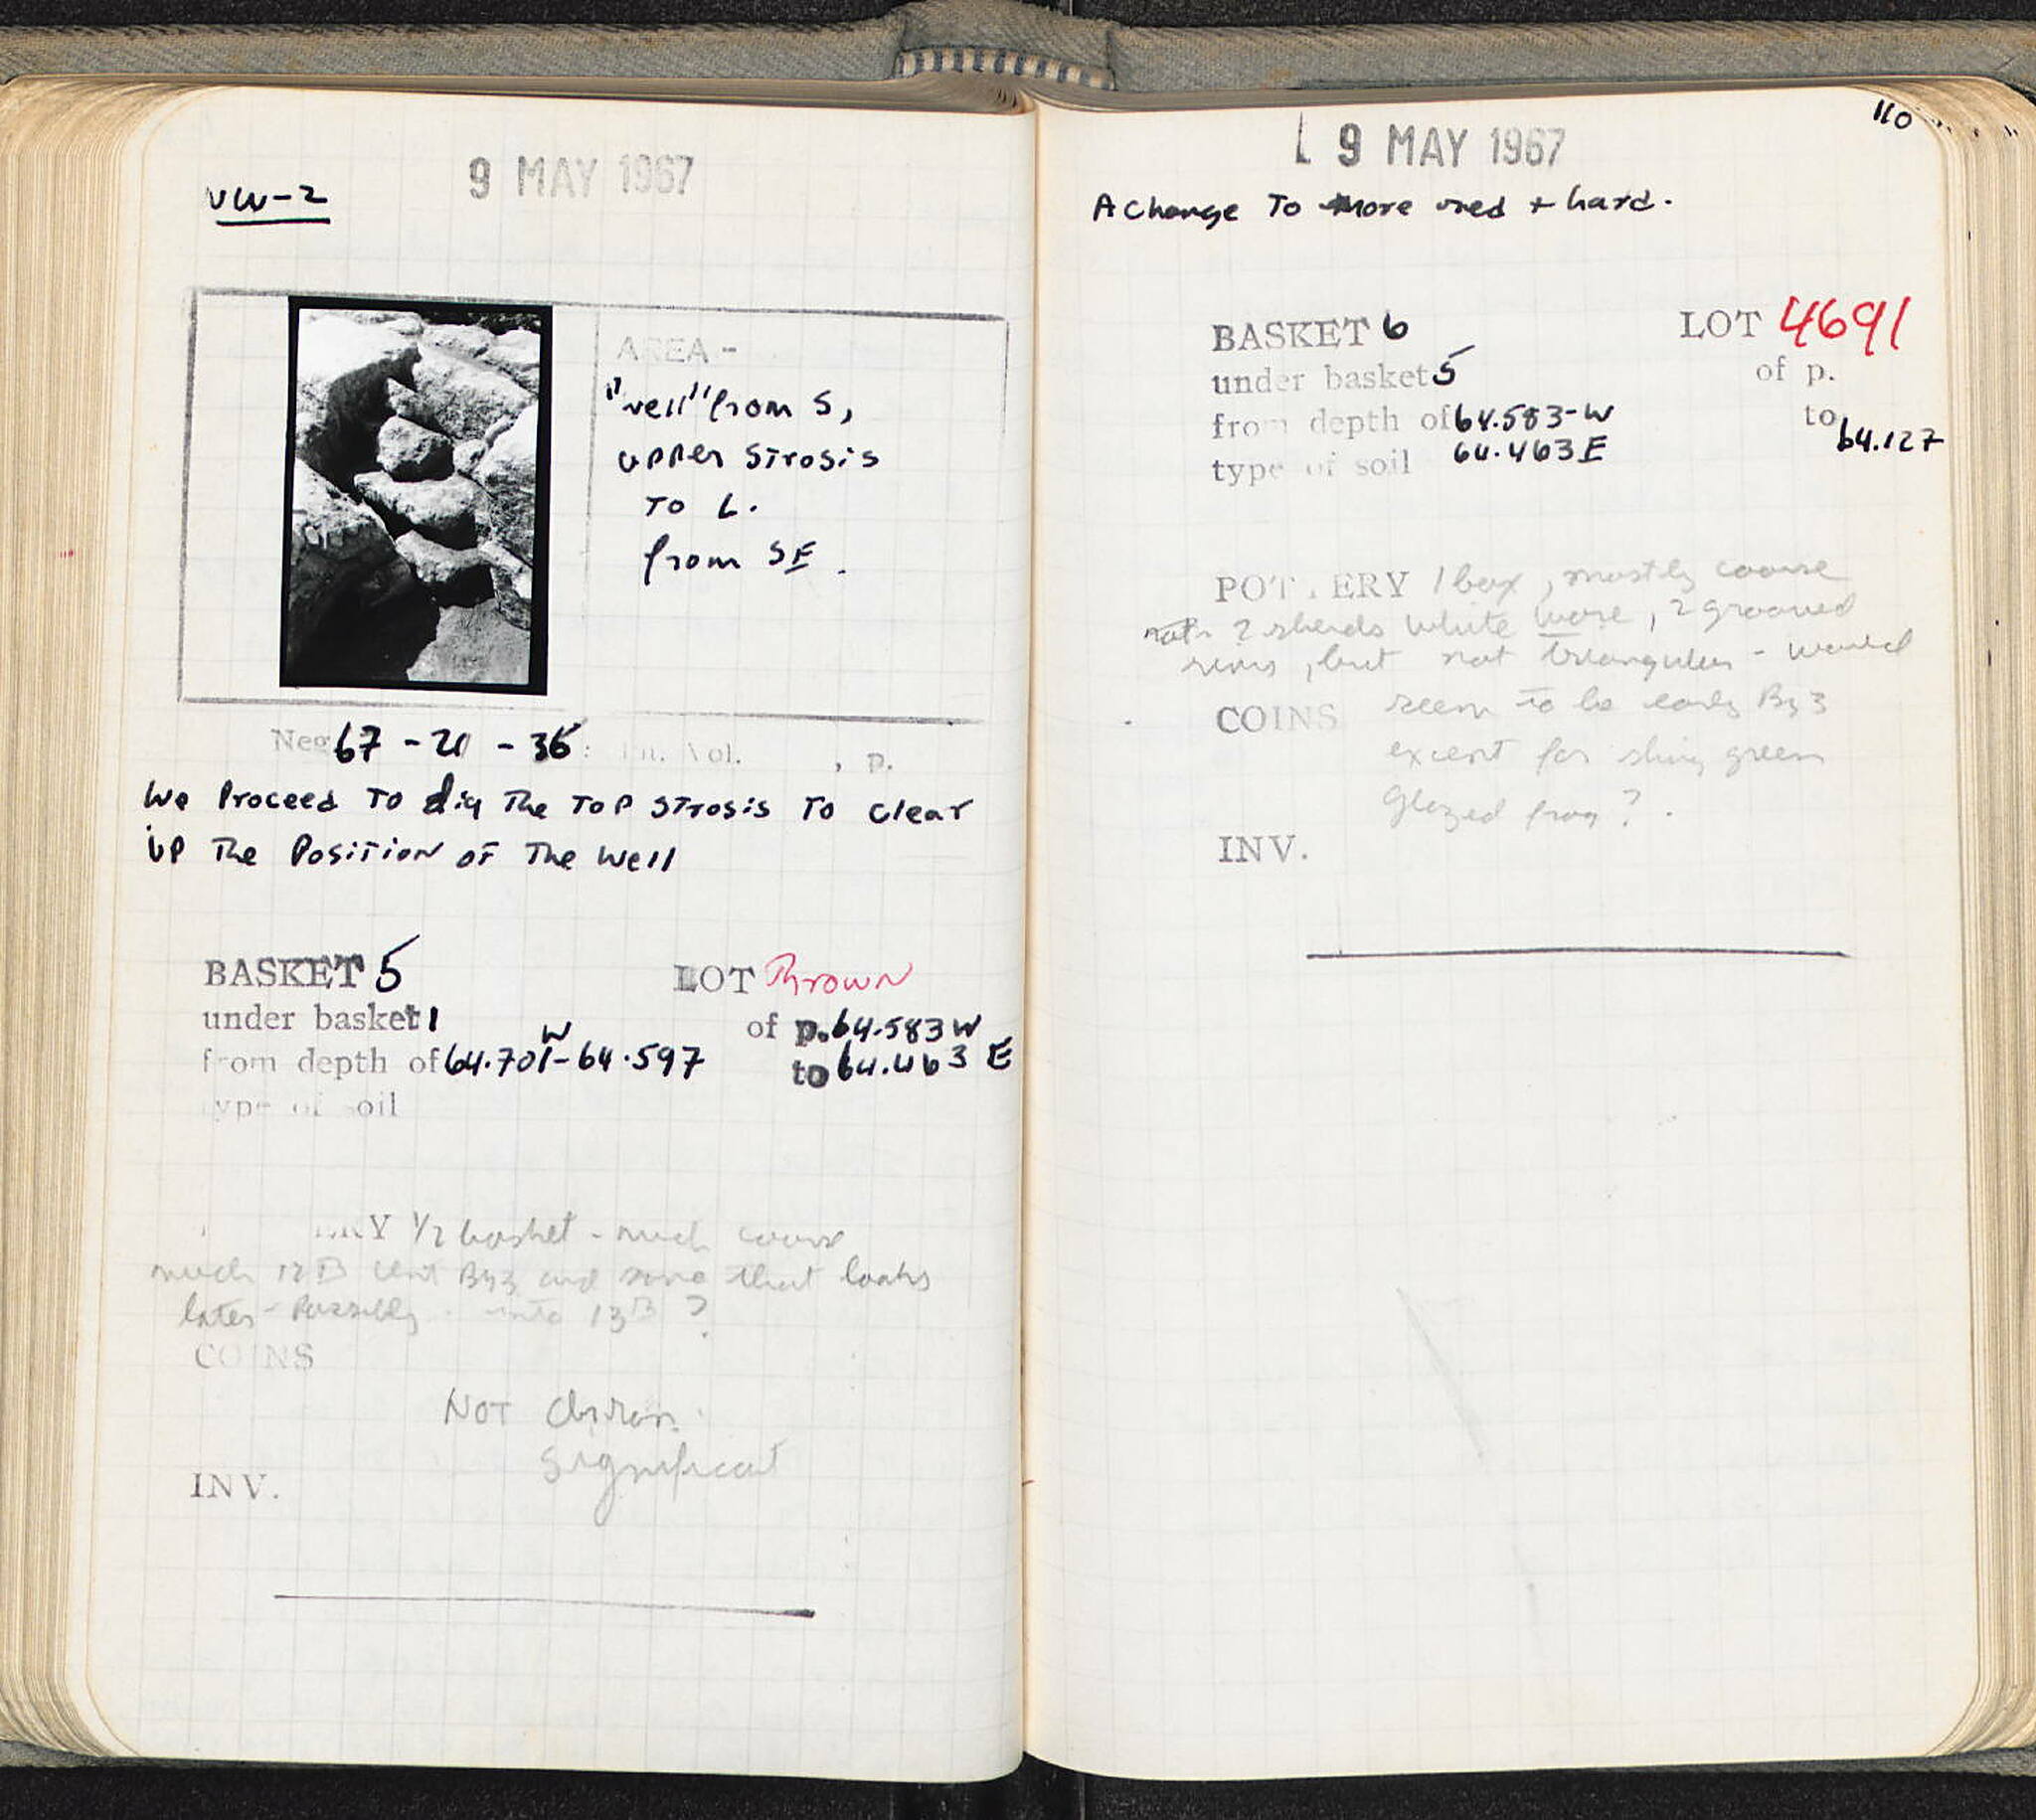 9 MAY 1967
VW-2
AREA -
"well" from S,
upper strosis
To L.
from SE.
Neg 67 - 21 - 36 : in. Vol. , p.
We Proceed To dig The Top strosis To clear
up The Position of The well
BASKET 5 LOT Thrown
under basket 1 of p. 64.583 W
from depth of 64.701 W - 64.597 to 64.463 E
type of soil
ERY 1/2 basket - much coarse
much 12 B and some that looks
later - Possibly into 13 B ?
COINS
NOT
Significant
INV.
110
9 MAY 1967
A change To More red + hard.
BASKET 6 LOT 4691
under basket 5 of p.
from depth of 64.583-W to 64.127
type of soil 64.463 E
POTTERY 1 box, mostly coarse
2 sherds white ware, 2 grooved
rims, but not triangular - would
COINS seem to be early By 3
except for shiny green
glazed frag ? .
INV.